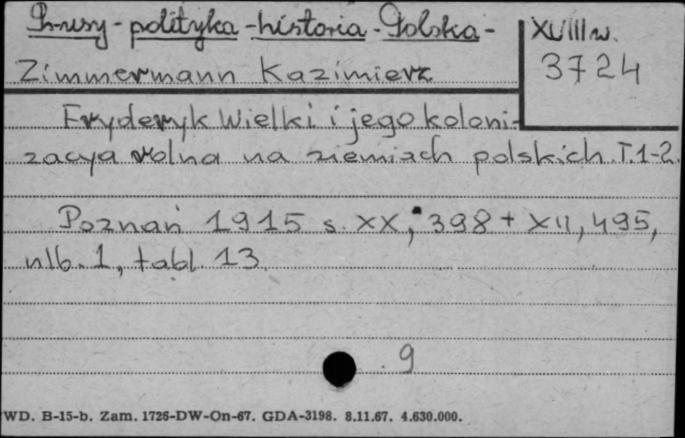 Prusy - polityka - historia - Polska -
XVIII w.
Zimmermann Kazimierz
3724
Fryderyk Wielki i jego koloni-
zacya rolna na ziemiach polskich. T.1-2.
Poznań 1915 s. XX, 398 + XII, 495,
nlb. 1, tabl. 13
9
WD. B-15-b. Zam. 1726-DW-On-67. GDA-3198. 8.11.67. 4.630.000.